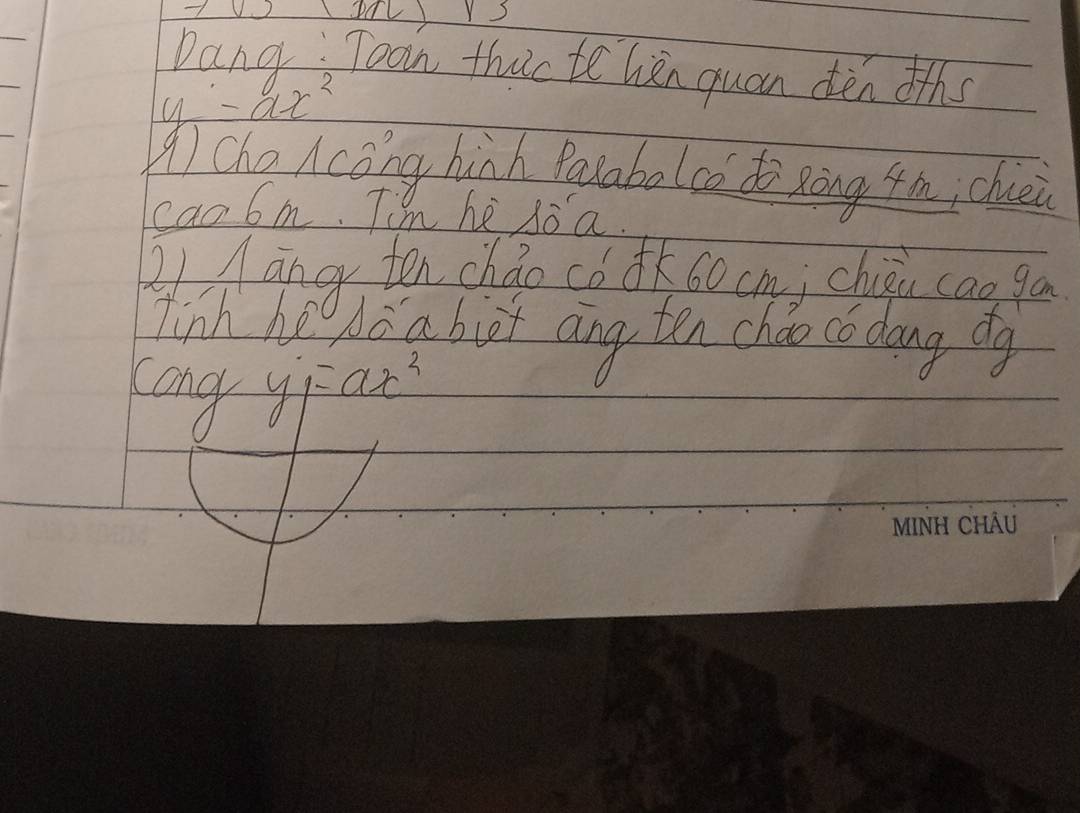 Dạng: Toán thực tế liên quan đến đths
y = ax²
1) Cho 1 cổng hình Parabol có độ rộng 4m; chiều
cao 6m. Tìm hệ số a.
2) 1 ăng ten chảo có đk 60 cm; chiều cao 9cm.
Tính hệ số a biết ăng ten chảo có dạng đg
cong y = ax²
MINH CHÂU